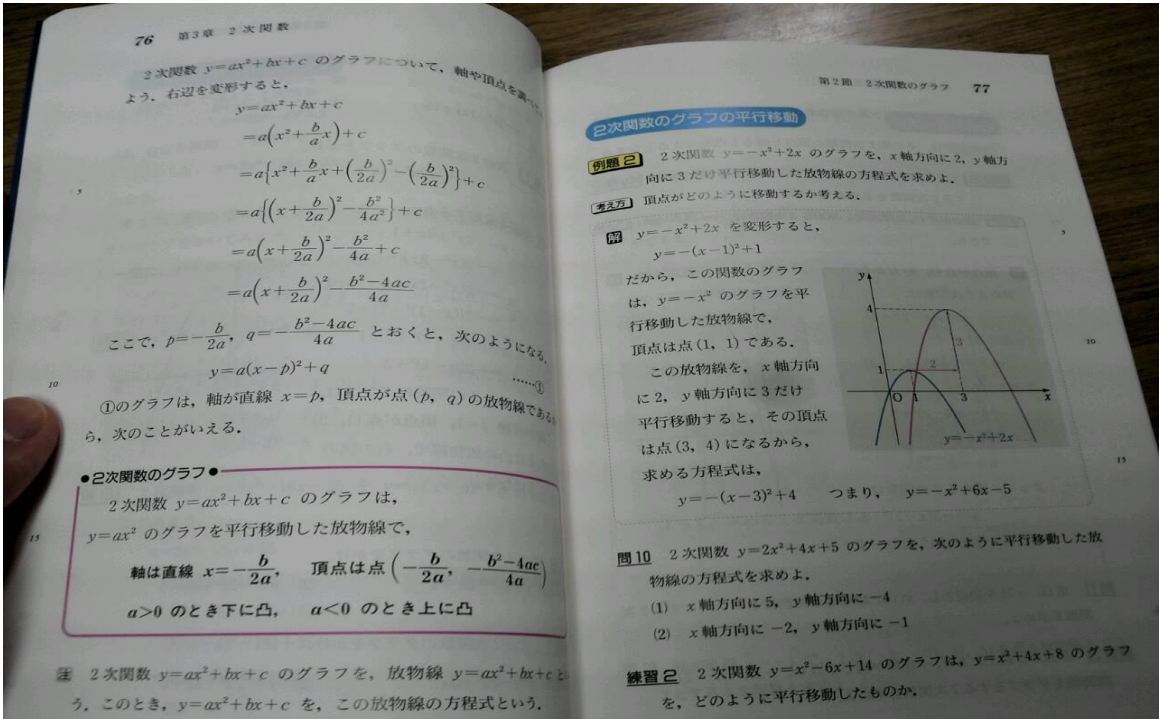 76 第3章 2次関数
2次関数 y=ax²+bx+c のグラフについて，軸や頂点を
よう．右辺を変形すると，
y=ax²+bx+c
=a(x²+b/a x)+c
=a{x²+b/a x+(b/2a)²−(b/2a)²}+c
5
=a{(x+b/2a)²−b²/4a²}+c
=a(x+b/2a)²−b²/4a+c
=a(x+b/2a)²−b²−4ac/4a
ここで，p=−b/2a，q=−b²−4ac/4a とおくと，次のようになる．
y=a(x−p)²+q ……①
10
①のグラフは，軸が直線 x=p，頂点が点(p, q)の放物線であるか
ら，次のことがいえる．
●2次関数のグラフ●
2次関数 y=ax²+bx+c のグラフは，
15
y=ax² のグラフを平行移動した放物線で，
軸は直線 x=−b/2a， 頂点は点(−b/2a, −b²−4ac/4a)
a>0 のとき下に凸， a<0 のとき上に凸
注 2次関数 y=ax²+bx+c のグラフを，放物線 y=ax²+bx+c とい
う．このとき，y=ax²+bx+c を，この放物線の方程式という．
第2節 2次関数のグラフ 77
2次関数のグラフの平行移動
例題2 2次関数 y=−x²+2x のグラフを，x軸方向に2，y軸方
向に3だけ平行移動した放物線の方程式を求めよ．
考え方 頂点がどのように移動するか考える．
5
解 y=−x²+2x を変形すると，
y=−(x−1)²+1
だから，この関数のグラフ
は，y=−x² のグラフを平
行移動した放物線で，
頂点は点(1, 1)である．
10
この放物線を，x軸方向
に2，y軸方向に3だけ
平行移動すると，その頂点
は点(3, 4)になるから，
求める方程式は，
15
y=−(x−3)²+4 つまり， y=−x²+6x−5
y
4
3
2
1
O 1 3 x
y=−x²+2x
問10 2次関数 y=2x²+4x+5 のグラフを，次のように平行移動した放
物線の方程式を求めよ．
(1) x軸方向に5，y軸方向に−4
(2) x軸方向に−2，y軸方向に−1
練習2 2次関数 y=x²−6x+14 のグラフは，y=x²+4x+8 のグラフ
を，どのように平行移動したものか．